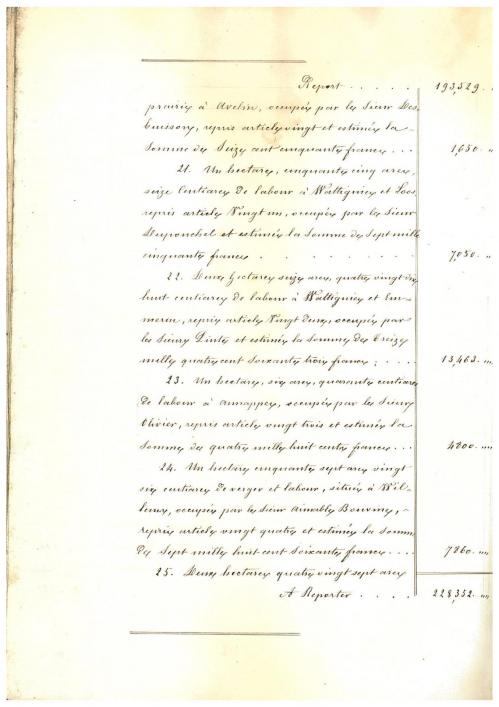 Report . . . . . 193,529 "
prairie à Avelin, occupée par les Sieur Des-
buissons, repris article vingt et estimée la
Somme de Seize cent cinquante francs . . . 1,650 "
21. Un hectare, cinquante cinq ares,
seize Centiares de labour à Wattignies et Loos,
repris article Vingt un, occupée par le Sieur
et estimée la Somme de Sept mille
cinquante francs . . . . . . . 7,050 "
22. Deux hectares seize ares, quatre vingt dix
huit centiares de labour à Wattignies et Em-
merin, repris article Vingt deux, occupée par
les Sieurs et estimée la Somme de treize
mille quatre cent soixante trois francs . . . . 13,463 "
23. Un hectare, six ares, quarante centiares
de labour à Annappes, occupée par les Sieurs
Olivier, repris article vingt trois et estimée la
Somme de quatre mille huit cents francs . . . 4800 "
24. Un hectare cinquante sept ares vingt
six centiares de verger et labour, située à Wil-
lems, occupée par le Sieur Aimable Bouvine,
repris article vingt quatre et estimée la Somme
de Sept mille huit cent Soixante francs . . . 7860 "
25. Deux hectares quatre vingt sept ares
A Reporter . . . . 228,352 "